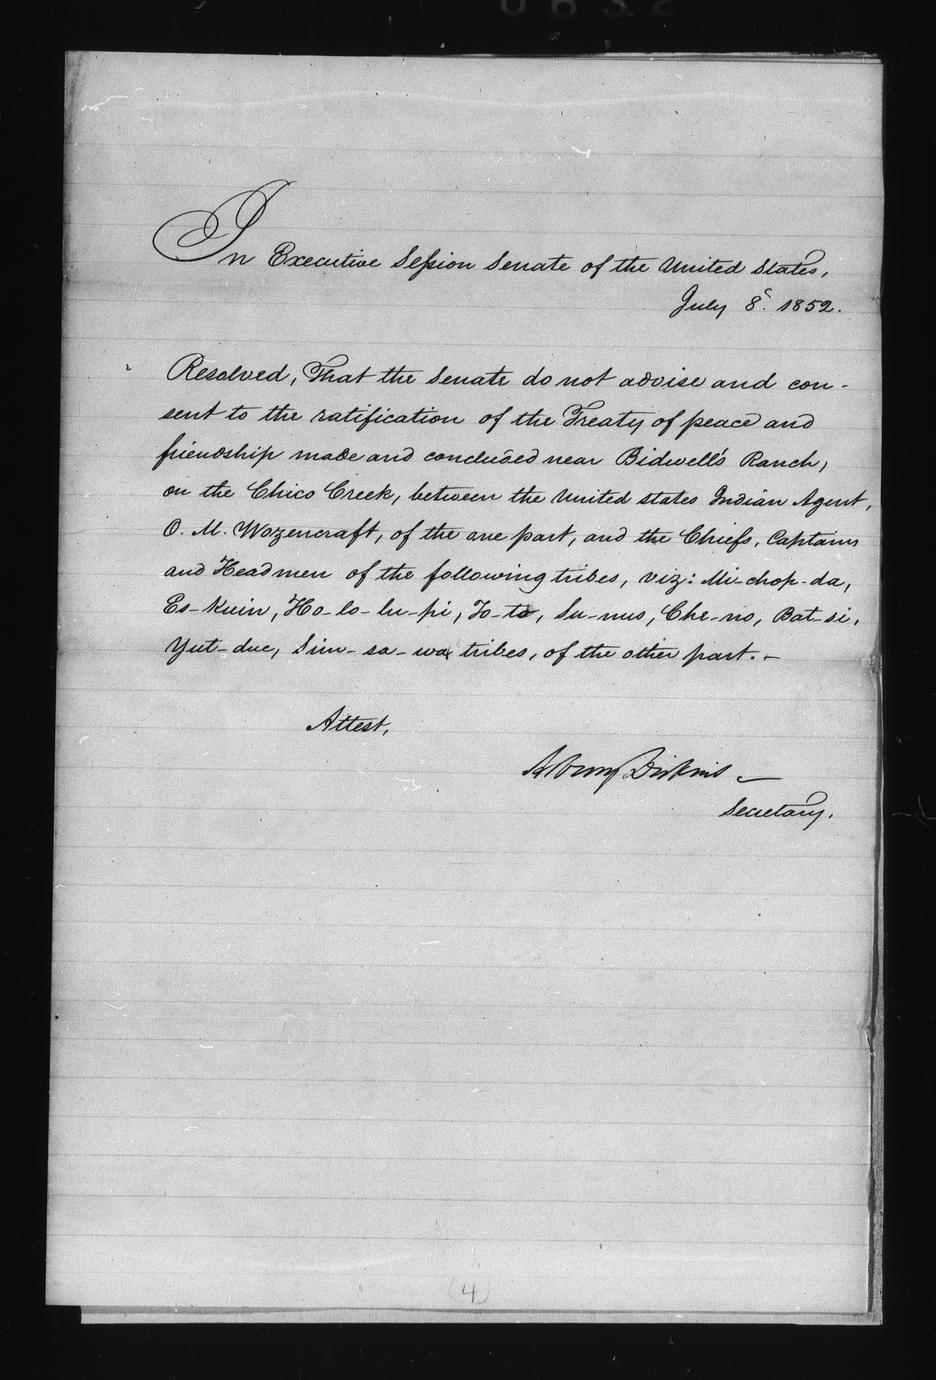 In Executive Session Senate of the United States,
July 8. 1852.
Resolved, That the Senate do not advise and con-
sent to the ratification of the Treaty of peace and
friendship made and concluded near Bidwell's Ranch,
on the Chico Creek, between the United States Indian Agent,
O. M. Wozencraft, of the one part, and the Chiefs, Captains
and Headmen of the following tribes, viz: Mi-chop-da,
Es-kuin, Ho-lo-lu-pi, To-to, Su-nus, Che-no, Bat-si,
Yut-duc, Sim-sa-wa tribes, of the other part. -
Attest,
Asbury Dickins
Secretary.
(4)